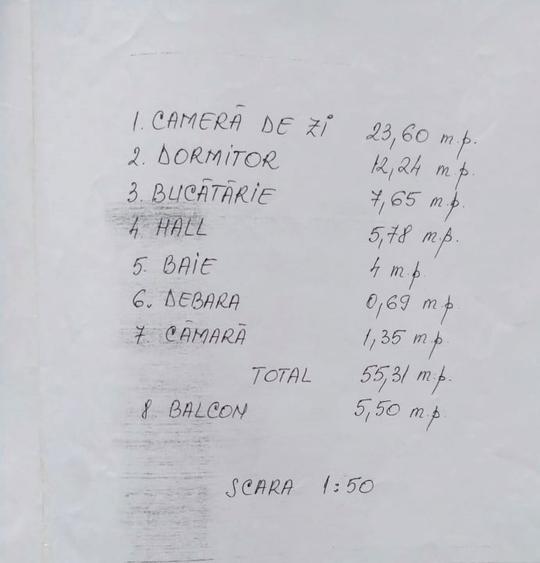 1. CAMERĂ DE Zi 23,60 m.p.
2. DORMITOR 12,24 m.p.
3. BUCĂTĂRiE 7,65 m.p.
4. HALL 5,78 m.p.
5. BAiE 4 m.p.
6. DEBARA 0,69 m.p.
7. CĂMARĂ 1,35 m.p.
TOTAL 55,31 m.p.
8. BALCON 5,50 m.p.
SCARA 1:50